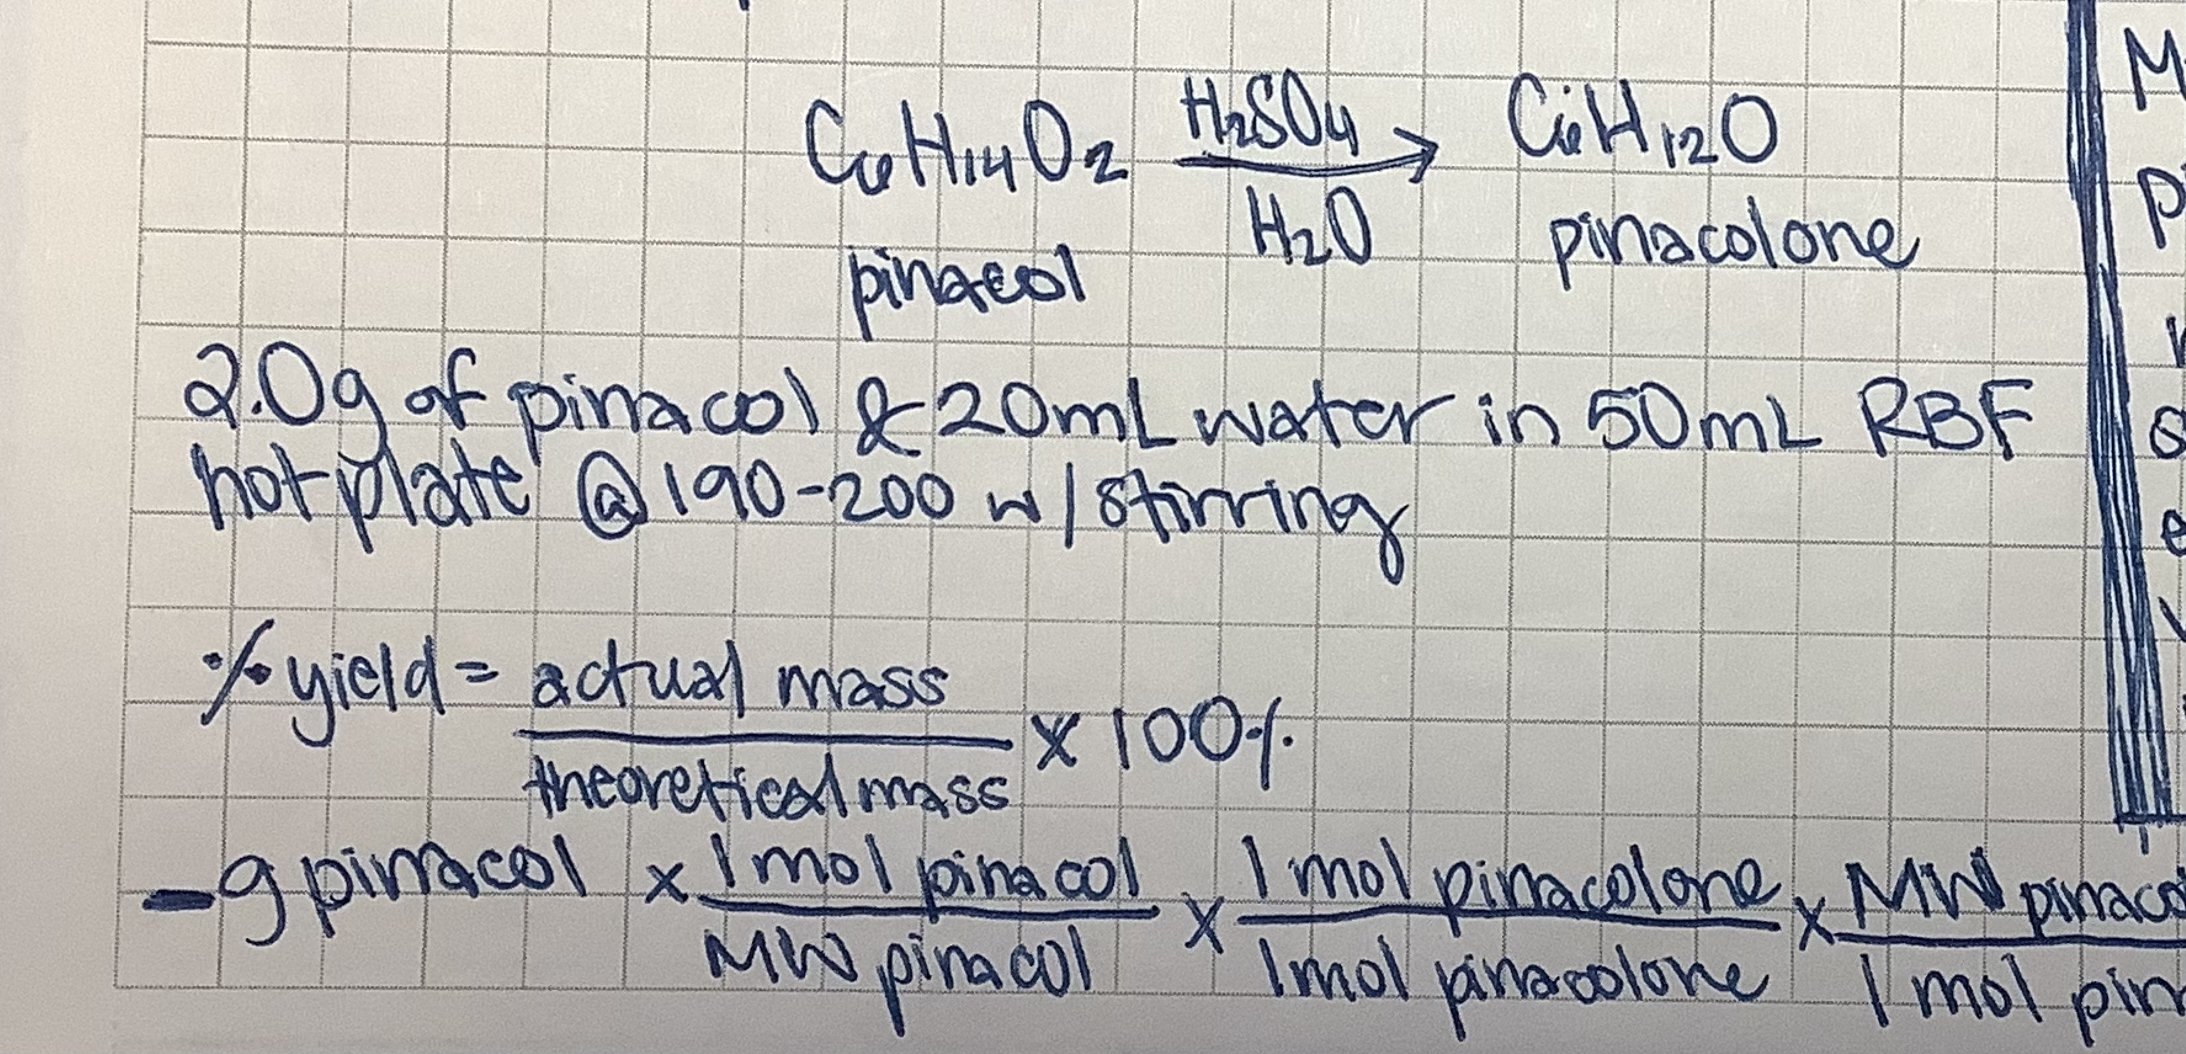 C6H14O2 H2SO4 → C6H12O
H2O
pinacol pinacolone
2.0g of pinacol & 20mL water in 50mL RBF
hot plate @ 190-200 w/ stirring
% yield = actual mass / theoretical mass x 100%
_ g pinacol x 1 mol pinacol / MW pinacol x 1 mol pinacolone / 1 mol pinacolone x MW pinaco / 1 mol pin